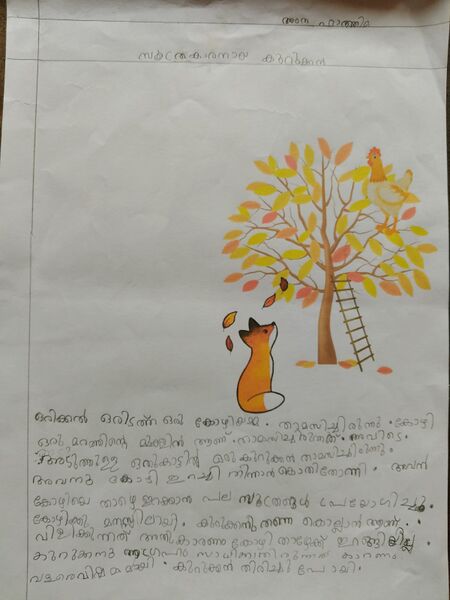 അന്ന ഫാത്തിമ
സൂത്രക്കാരനായ കുറുക്കൻ
ഒരിക്കൽ ഒരിടത്ത് ഒരു കോഴിയമ്മ . താമസിച്ചിരുന്നു . കോഴി
ഒരു മരത്തിന്റെ മുകളിൽ ആണ് . താമസിച്ചിരുന്നത് . അവിടെ .
അടുത്തുള്ള ഒരു കാട്ടിൽ ഒരു കുറുക്കൻ താമസിച്ചിരുന്നു .
അവനു കോഴി ഇറച്ചി തിന്നാൻ കൊതിതോന്നി . അവൻ
കോഴിയെ താഴെ ഇറക്കാൻ പല സൂത്രങ്ങൾ ഉപയോഗിച്ചു .
കോഴിക്കു മനസ്സിലായി . കുറുക്കൻ തന്നെ കൊല്ലാൻ ആണ് .
വിളിക്കുന്നത് അതു കാരണം കോഴി താഴേക്ക് ഇറങ്ങിയില്ല .
കുറുക്കനു ആഗ്രഹം സാധിക്കാതിരുന്നത് കാരണം
വളരെ വിഷമമായി . കുറുക്കൻ തിരിച്ചു പോയി .